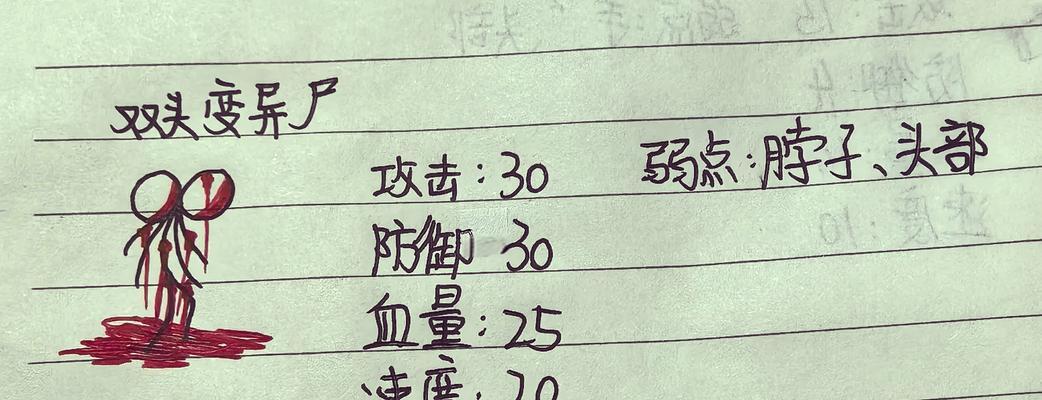 双头变异尸
攻击：30 弱点：脖子、头部
防御 30
血量：25
速度：20